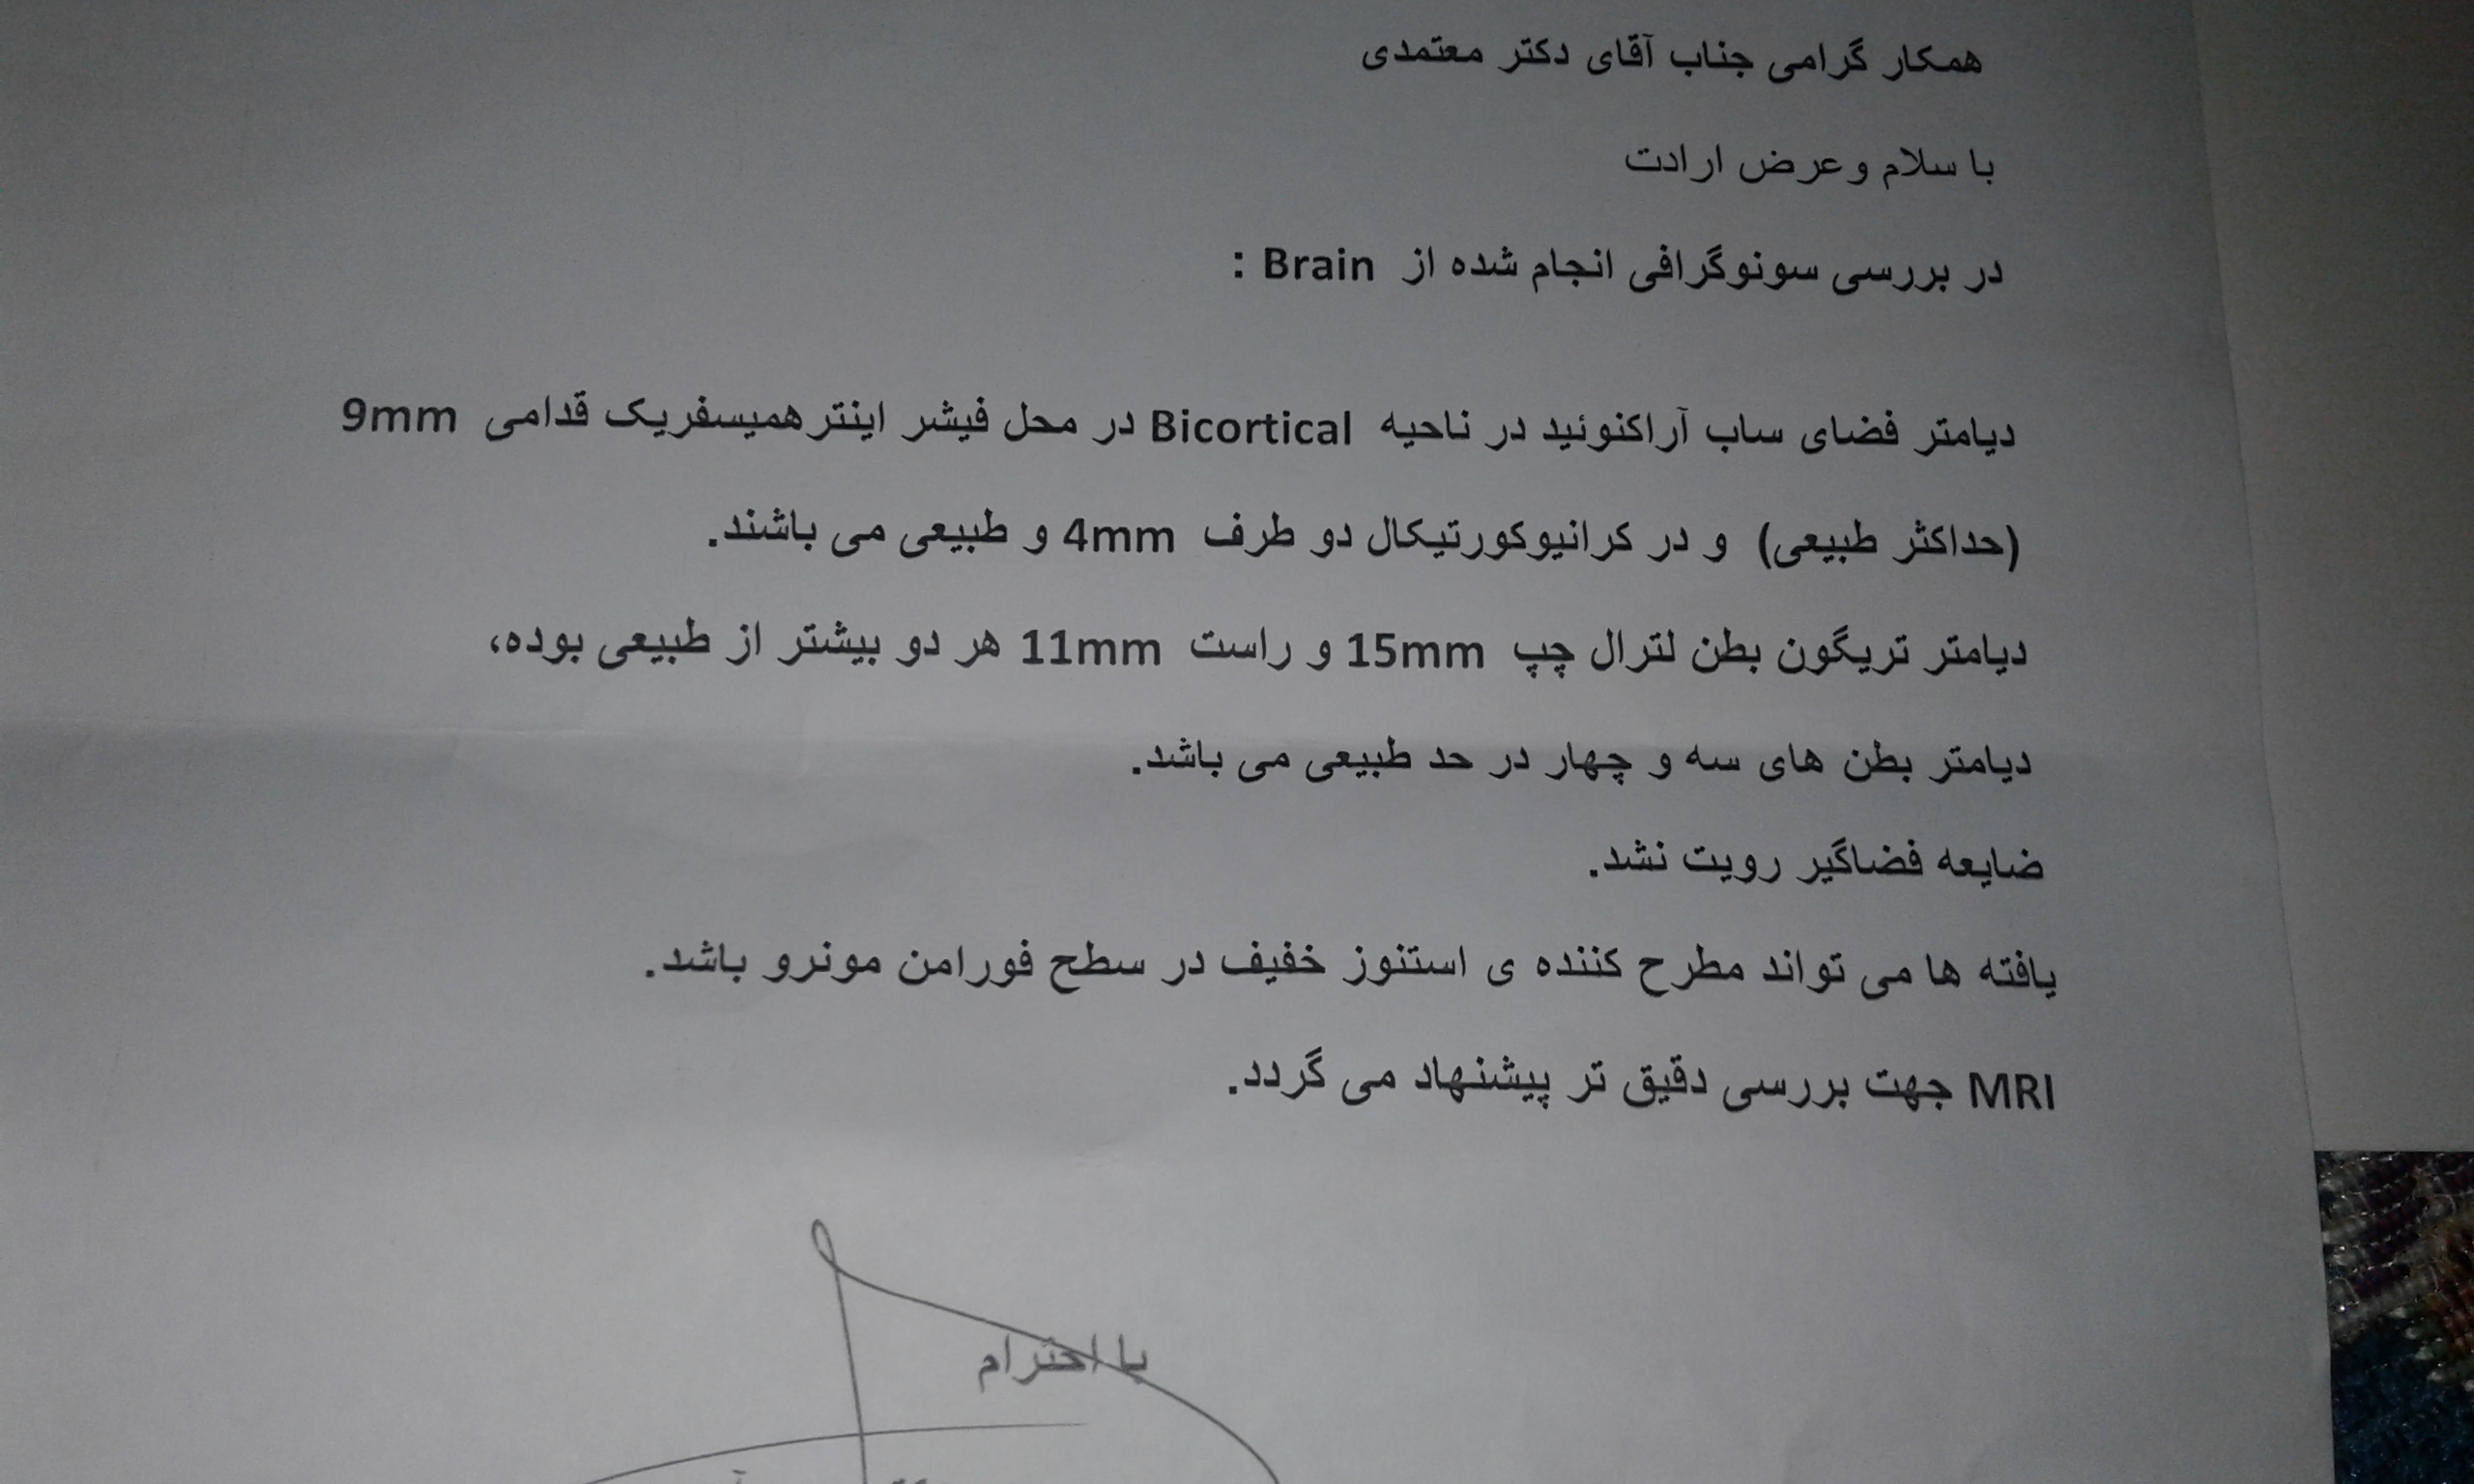 همکار گرامی جناب آقای دکتر معتمدی
با سلام وعرض ارادت
در بررسی سونوگرافی انجام شده از Brain :
دیامتر فضای ساب آراکنوئید در ناحیه Bicortical در محل فیشر اینترهمیسفریک قدامی 9mm
(حداکثر طبیعی) و در کرانیوکورتیکال دو طرف 4mm و طبیعی می باشند.
دیامتر تریگون بطن لترال چپ 15mm و راست 11mm هر دو بیشتر از طبیعی بوده،
دیامتر بطن های سه و چهار در حد طبیعی می باشد.
ضایعه فضاگیر رویت نشد.
یافته ها می تواند مطرح کننده ی استنوز خفیف در سطح فورامن مونرو باشد.
MRI جهت بررسی دقیق تر پیشنهاد می گردد.
با احترام